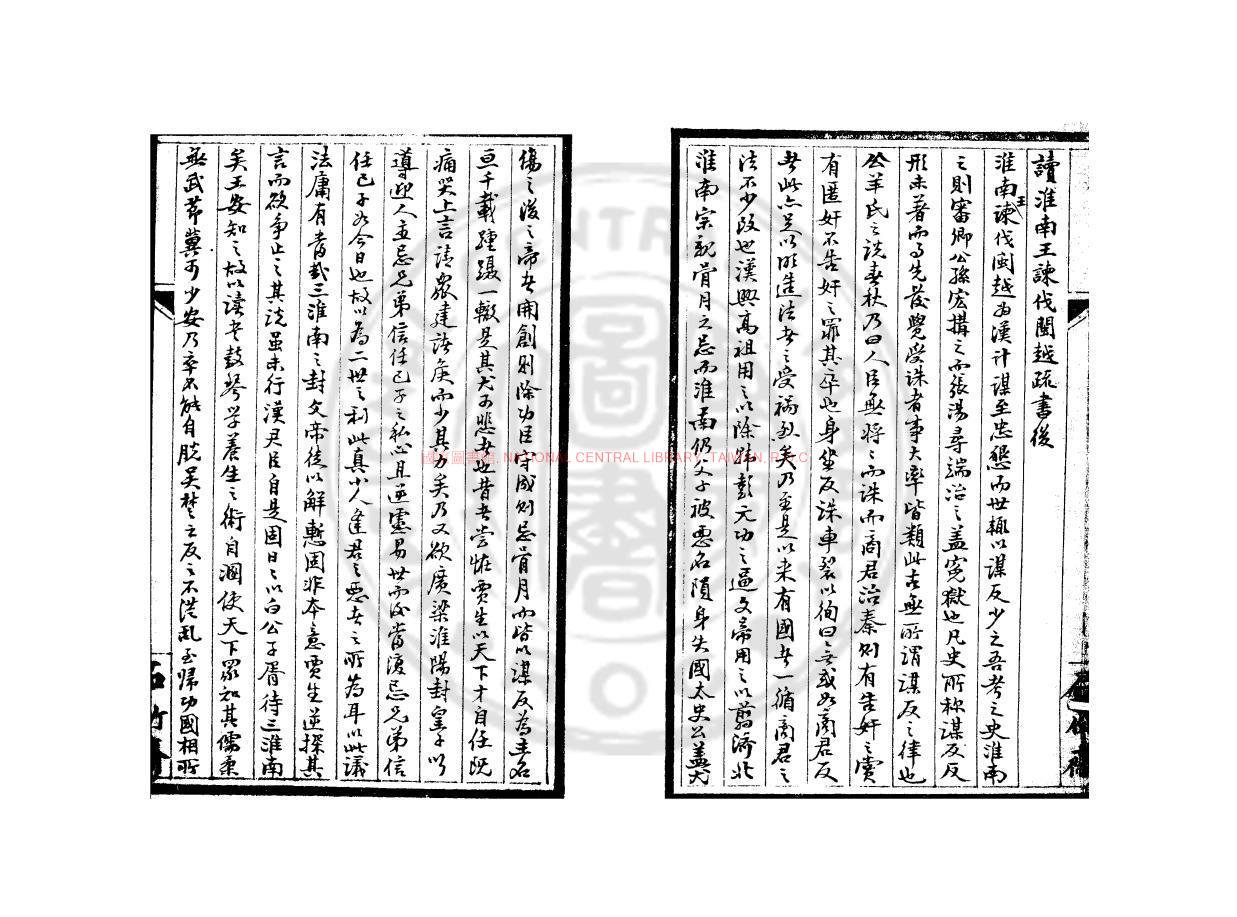 讀淮南王諫伐閩越疏書後
淮南王諫伐閩越為漢計謀至忠懇而世輒以謀反少之吾考之史淮南
之則審卿公孫宏搆之而張湯尋端治之蓋寃獄也凡史所称謀反反
形未著而事先發覺受誅者事大率皆類此古無所謂謀反之律也
公羊氏之説春秋乃曰人臣無將將而誅而商君治秦則有告奸之賞
有匿奸不告奸之罪其卒也身坐反誅車裂以徇曰無或如商君反
者此亦足以明造法者之受禍烈矣乃至是以来有國者一循商君之
法不少改也漢興高祖用之以除韓彭元功之逼文帝用之以翦濟北
淮南宗親骨月之忌而淮南仍父子被惡名隕身失國太史公蓋尤
傷之後之帝者開創則除功臣守成則忌骨月而皆以謀反為主名
亘千載踵躡一轍是其尤可悲者也昔者嘗怪賈生以天下才自任既
痛哭上言請眾建諸侯而少其力矣乃又欲廣梁淮陽封皇子以
導迎人主忌兄弟信任己子之私心且逆慮易世而後當復忌兄弟信
任己子如今日也故以為二世之利此真小人逢君之惡者之所為耳以此議
法庸有當哉三淮南之封文帝徒以解慙固非本意賈生逆探其
言而欲爭止之其説虽未行漢君臣自是固日日以白公子胥待三淮南
矣王安知之故以讀書鼓琴学養生之術自溷使天下眾知其儒柔
無武節冀可少安乃卒不能自脱吴楚之反之不從乱至歸功國相所
國家圖書館, NATIONAL CENTRAL LIBRARY, TAIWAN, R.O.C